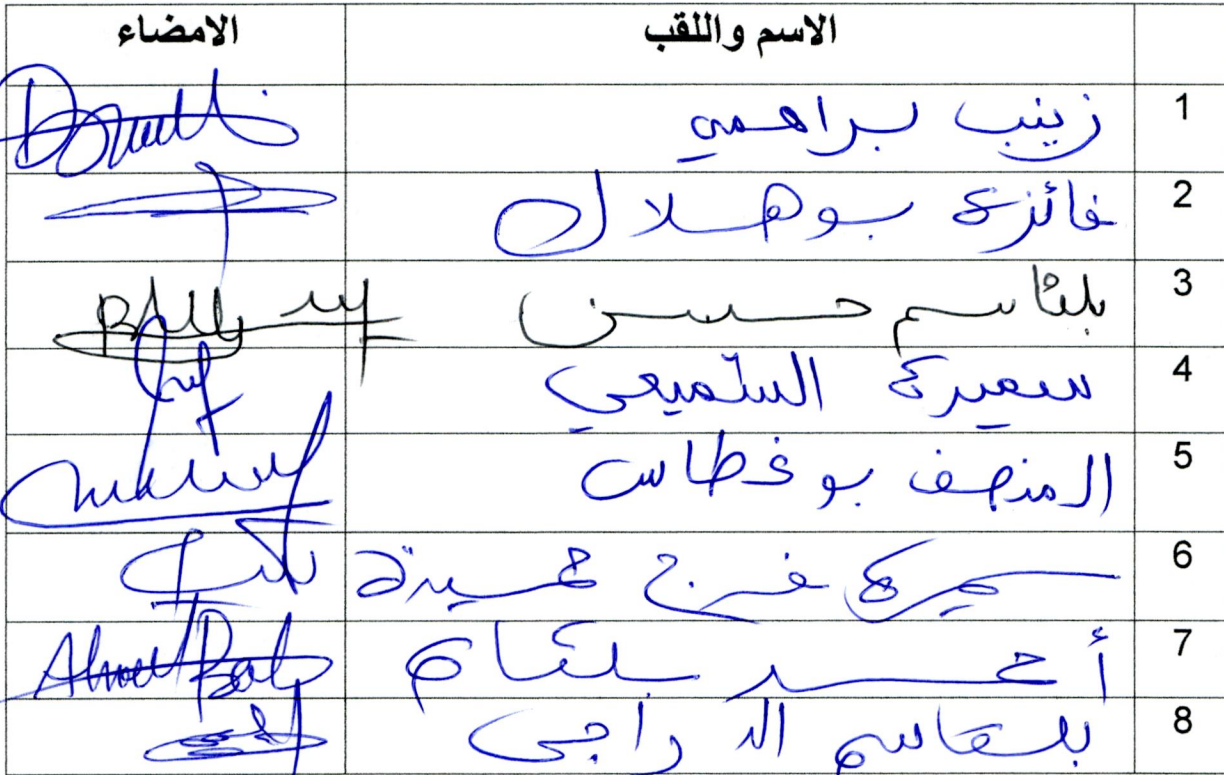 الاسم واللقب الامضاء
1 زينب براهمي
2 فائزة بوهلال
3 بلقاسم حسن
4 سميرة الشميعي
5 المنصف بوغطاس
6 سميرة فرج حميدة
7 أحمد
8 بلقاسم الدراجي